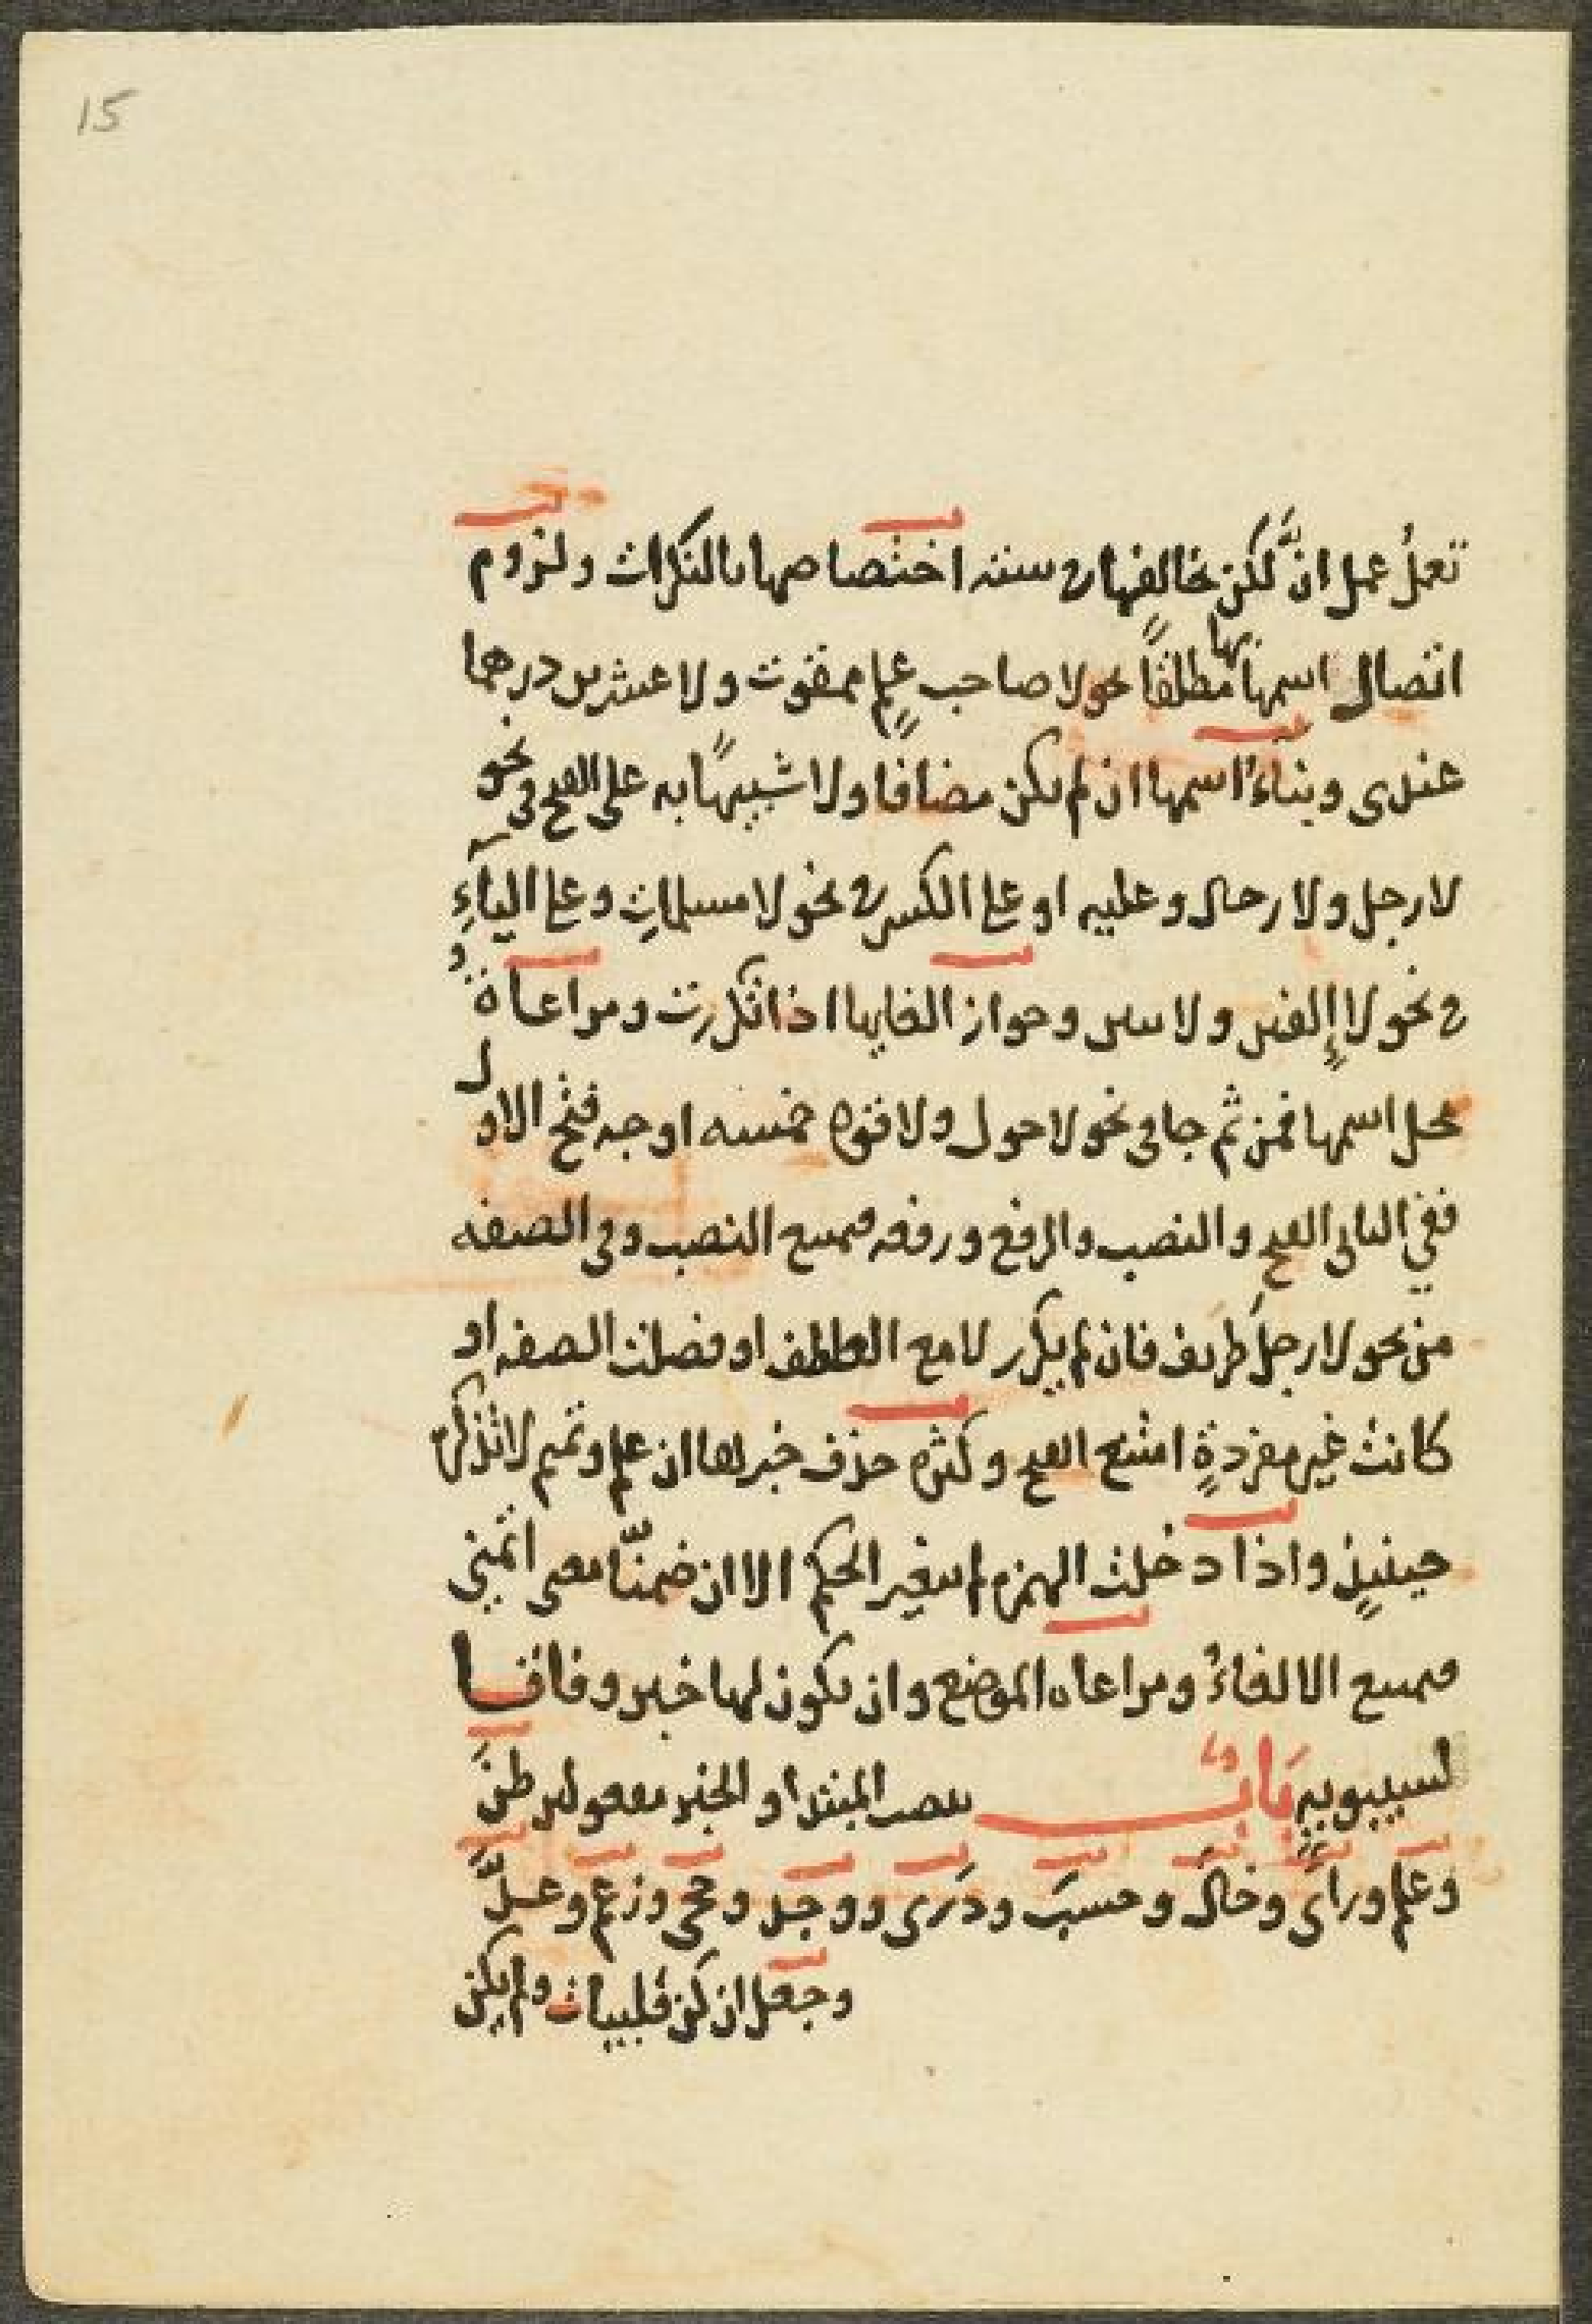 15
تعملُ عمل انَّ لكن تخالفها في ستة اختصاصها بالنكرات ولزوم
اتصال اسمها بها مطلقًا نحو لا صاحب علمٍ ممقوت ولا عشرين درهما
عندى وبناءُ اسمها ان لم يكن مضافا ولا شبيهًا به على الفتح فى نحو
لا رجل ولا رجال وعليه او على الكسر في نحو لا مسلماتِ وعلى الياءِ
في نحو لا إلفين ولا بنين وجواز الغايها اذا تكررت ومراعاةُ
محل اسمها فمن ثم جا فى نحو لا حول ولا قوه خمسه اوجه فتح الاول
ففي الثانى الفتح والنصب والرفع ورفعه فيمتنع النصب وفى الصفه
من نحو لا رجلَ ظريف فان لم يكرر لا مع العطف او فصلت الصفه او
كانت غير مفردةٍ امتنع الفتح وكثره حذف خبرها ان علم وتميم لا تذكره
حينيذٍ واذا دخلت الهمزه لم يتغير الحكم الا ان ضمنّا معنى اتمنى
فيمتنع الالغاءُ ومراعاه الموضع وان يكون لها خبر وفاقا
لسيبويهِ بَابٌ ينصب المبتدا والخبر مفعولين ظنَ
وعلم وراَى وخالَ وحسبَ ودَرَى ووجد وحجى وزعم وعدَّ
وجعل ان كن قلبيات ولم يكن